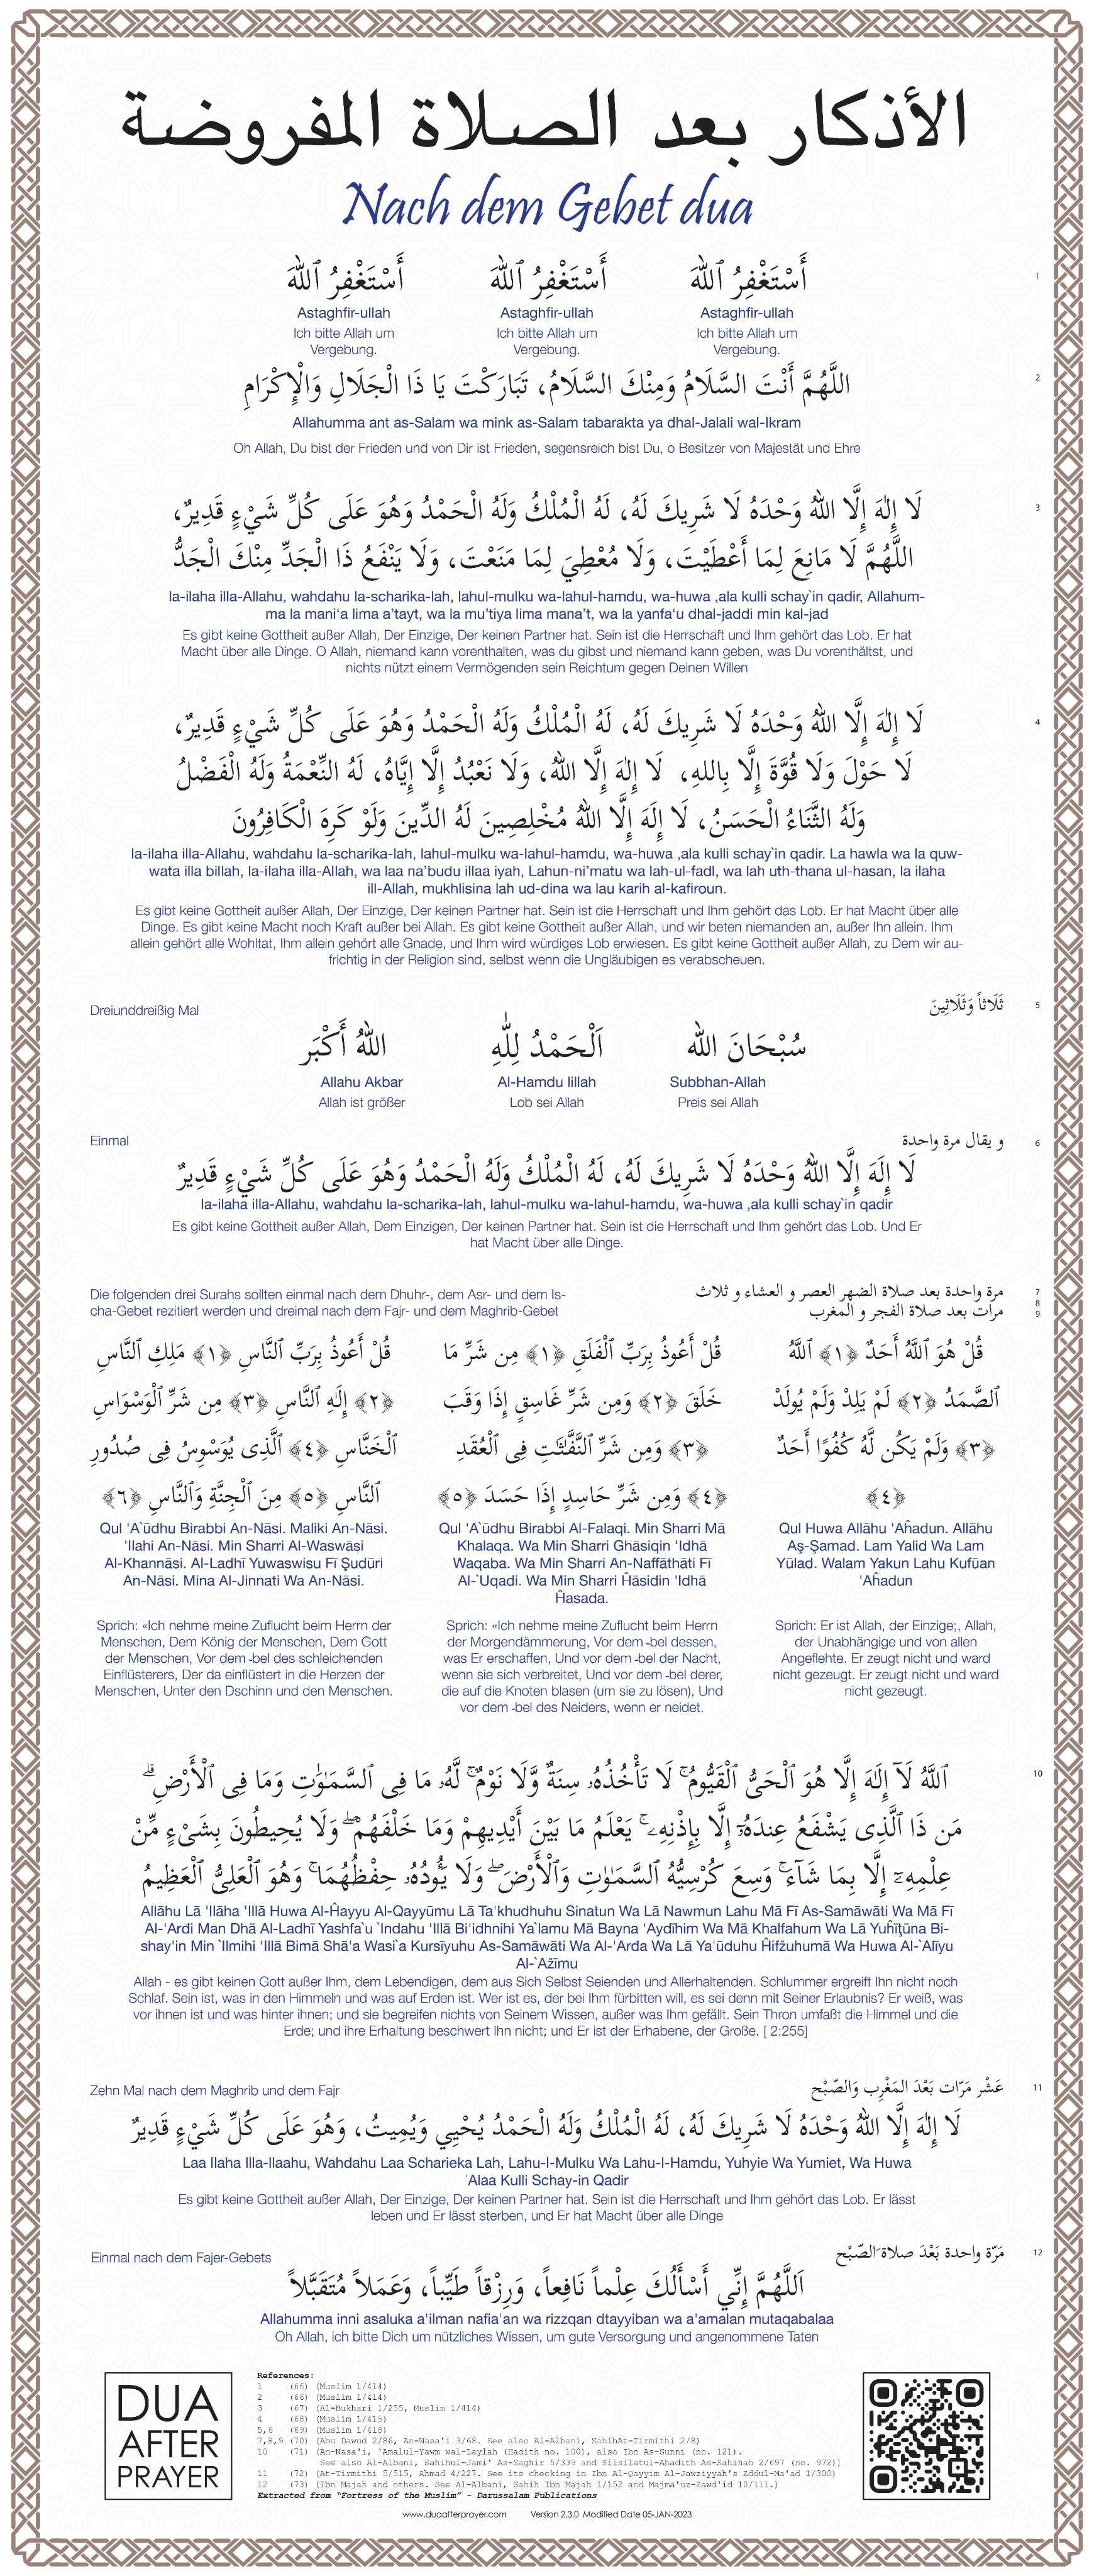 الأذكار بعد الصلاة المفروضة
Nach dem Gebet dua
أَسْتَغْفِرُ ٱللَّهَ أَسْتَغْفِرُ ٱللَّهَ أَسْتَغْفِرُ ٱللَّهَ 1
Astaghfir-ullah Astaghfir-ullah Astaghfir-ullah
Ich bitte Allah um Ich bitte Allah um Ich bitte Allah um
Vergebung. Vergebung. Vergebung.
اللَّهُمَّ أَنْتَ السَّلَامُ وَمِنْكَ السَّلَامُ، تَبَارَكْتَ يَا ذَا الْجَلَالِ وَالْإِكْرَامِ 2
Allahumma ant as-Salam wa mink as-Salam tabarakta ya dhal-Jalali wal-Ikram
Oh Allah, Du bist der Frieden und von Dir ist Frieden, segensreich bist Du, o Besitzer von Majestät und Ehre
لَا إِلٰهَ إِلَّا اللهُ وَحْدَهُ لَا شَرِيكَ لَهُ، لَهُ الْمُلْكُ وَلَهُ الْحَمْدُ وَهُوَ عَلَى كُلِّ شَيْءٍ قَدِيرٌ، 3
اللَّهُمَّ لَا مَانِعَ لِمَا أَعْطَيْتَ، وَلَا مُعْطِيَ لِمَا مَنَعْتَ، وَلَا يَنْفَعُ ذَا الْجَدِّ مِنْكَ الْجَدُّ
la-ilaha illa-Allahu, wahdahu la-scharika-lah, lahul-mulku wa-lahul-hamdu, wa-huwa ‚ala kulli schay`in qadir, Allahum-
ma la mani‘a lima a’tayt, wa la mu’tiya lima mana’t, wa la yanfa‘u dhal-jaddi min kal-jad
Es gibt keine Gottheit außer Allah, Der Einzige, Der keinen Partner hat. Sein ist die Herrschaft und Ihm gehört das Lob. Er hat
Macht über alle Dinge. O Allah, niemand kann vorenthalten, was du gibst und niemand kann geben, was Du vorenthältst, und
nichts nützt einem Vermögenden sein Reichtum gegen Deinen Willen
لَا إِلٰهَ إِلَّا اللهُ وَحْدَهُ لَا شَرِيكَ لَهُ، لَهُ الْمُلْكُ وَلَهُ الْحَمْدُ وَهُوَ عَلَى كُلِّ شَيْءٍ قَدِيرٌ، 4
لَا حَوْلَ وَلَا قُوَّةَ إِلَّا بِاللهِ، لَا إِلٰهَ إِلَّا اللهُ، وَلَا نَعْبُدُ إِلَّا إِيَّاهُ، لَهُ النِّعْمَةُ وَلَهُ الْفَضْلُ
وَلَهُ الثَّنَاءُ الْحَسَنُ، لَا إِلَهَ إِلَّا اللهُ مُخْلِصِينَ لَهُ الدِّينَ وَلَوْ كَرِهَ الْكَافِرُونَ
la-ilaha illa-Allahu, wahdahu la-scharika-lah, lahul-mulku wa-lahul-hamdu, wa-huwa ‚ala kulli schay`in qadir. La hawla wa la quw-
wata illa billah, la-ilaha illa-Allah, wa laa na’budu illaa iyah, Lahun-ni’matu wa lah-ul-fadl, wa lah uth-thana ul-hasan, la ilaha
ill-Allah, mukhlisina lah ud-dina wa lau karih al-kafiroun.
Es gibt keine Gottheit außer Allah, Der Einzige, Der keinen Partner hat. Sein ist die Herrschaft und Ihm gehört das Lob. Er hat Macht über alle
Dinge. Es gibt keine Macht noch Kraft außer bei Allah. Es gibt keine Gottheit außer Allah, und wir beten niemanden an, außer Ihn allein. Ihm
allein gehört alle Wohltat, Ihm allein gehört alle Gnade, und Ihm wird würdiges Lob erwiesen. Es gibt keine Gottheit außer Allah, zu Dem wir au-
frichtig in der Religion sind, selbst wenn die Ungläubigen es verabscheuen.
Dreiunddreißig Mal ثَلَاثاً وَثَلَاثِينَ 5
سُبْحَانَ الله اَلْحَمْدُ لِلّٰهِ اللهُ أَكْبَر
Allahu Akbar Al-Hamdu lillah Subbhan-Allah
Allah ist größer Lob sei Allah Preis sei Allah
Einmal و يقال مرة واحدة 6
لَا إِلَهَ إِلَّا اللهُ وَحْدَهُ لَا شَرِيكَ لَهُ، لَهُ الْمُلْكُ وَلَهُ الْحَمْدُ وَهُوَ عَلَى كُلِّ شَيْءٍ قَدِيرٌ
la-ilaha illa-Allahu, wahdahu la-scharika-lah, lahul-mulku wa-lahul-hamdu, wa-huwa ‚ala kulli schay`in qadir
Es gibt keine Gottheit außer Allah, Dem Einzigen, Der keinen Partner hat. Sein ist die Herrschaft und Ihm gehört das Lob. Und Er
hat Macht über alle Dinge.
Die folgenden drei Surahs sollten einmal nach dem Dhuhr-, dem Asr- und dem Is-
cha-Gebet rezitiert werden und dreimal nach dem Fajr- und dem Maghrib-Gebet
مرة واحدة بعد صلاة الضهر العصر و العشاء و ثلاث 7
مرات بعد صلاة الفجر و المغرب 8
9
قُلْ هُوَ ٱللَّهُ أَحَدٌ ﴿١﴾ ٱللَّهُ
ٱلصَّمَدُ ﴿٢﴾ لَمْ يَلِدْ وَلَمْ يُولَدْ
﴿٣﴾ وَلَمْ يَكُن لَّهُ كُفُوًا أَحَدٌ
﴿٤﴾
Qul Huwa Allāhu 'Aĥadun. Allāhu
Aş-Şamad. Lam Yalid Wa Lam
Yūlad. Walam Yakun Lahu Kufūan
'Aĥadun
Sprich: Er ist Allah, der Einzige;, Allah,
der Unabhängige und von allen
Angeflehte. Er zeugt nicht und ward
nicht gezeugt. Er zeugt nicht und ward
nicht gezeugt.
قُلْ أَعُوذُ بِرَبِّ ٱلْفَلَقِ ﴿١﴾ مِن شَرِّ مَا
خَلَقَ ﴿٢﴾ وَمِن شَرِّ غَاسِقٍ إِذَا وَقَبَ
﴿٣﴾ وَمِن شَرِّ ٱلنَّفَّٰثَٰتِ فِى ٱلْعُقَدِ
﴿٤﴾ وَمِن شَرِّ حَاسِدٍ إِذَا حَسَدَ ﴿٥﴾
Qul 'A`ūdhu Birabbi Al-Falaqi. Min Sharri Mā
Khalaqa. Wa Min Sharri Ghāsiqin 'Idhā
Waqaba. Wa Min Sharri An-Naffāthāti Fī
Al-`Uqadi. Wa Min Sharri Ĥāsidin 'Idhā
Ĥasada.
Sprich: «Ich nehme meine Zuflucht beim Herrn
der Morgendämmerung, Vor dem -bel dessen,
was Er erschaffen, Und vor dem -bel der Nacht,
wenn sie sich verbreitet, Und vor dem -bel derer,
die auf die Knoten blasen (um sie zu lösen), Und
vor dem -bel des Neiders, wenn er neidet.
قُلْ أَعُوذُ بِرَبِّ ٱلنَّاسِ ﴿١﴾ مَلِكِ ٱلنَّاسِ
﴿٢﴾ إِلَٰهِ ٱلنَّاسِ ﴿٣﴾ مِن شَرِّ ٱلْوَسْوَاسِ
ٱلْخَنَّاسِ ﴿٤﴾ ٱلَّذِى يُوَسْوِسُ فِى صُدُورِ
ٱلنَّاسِ ﴿٥﴾ مِنَ ٱلْجِنَّةِ وَٱلنَّاسِ ﴿٦﴾
Qul 'A`ūdhu Birabbi An-Nāsi. Maliki An-Nāsi.
'Ilahi An-Nāsi. Min Sharri Al-Waswāsi
Al-Khannāsi. Al-Ladhī Yuwaswisu Fī Şudūri
An-Nāsi. Mina Al-Jinnati Wa An-Nāsi.
Sprich: «Ich nehme meine Zuflucht beim Herrn der
Menschen, Dem König der Menschen, Dem Gott
der Menschen, Vor dem -bel des schleichenden
Einflüsterers, Der da einflüstert in die Herzen der
Menschen, Unter den Dschinn und den Menschen.
ٱللَّهُ لَآ إِلَٰهَ إِلَّا هُوَ ٱلْحَىُّ ٱلْقَيُّومُ ۚ لَا تَأْخُذُهُۥ سِنَةٌ وَّلَا نَوْمٌ ۚ لَّهُۥ مَا فِى ٱلسَّمَٰوَٰتِ وَمَا فِى ٱلْأَرْضِ ۗ 10
مَن ذَا ٱلَّذِى يَشْفَعُ عِندَهُۥٓ إِلَّا بِإِذْنِهِۦ ۚ يَعْلَمُ مَا بَيْنَ أَيْدِيهِمْ وَمَا خَلْفَهُمْ ۖ وَلَا يُحِيطُونَ بِشَىْءٍ مِّنْ
عِلْمِهِۦٓ إِلَّا بِمَا شَآءَ ۚ وَسِعَ كُرْسِيُّهُ ٱلسَّمَٰوَٰتِ وَٱلْأَرْضَ ۖ وَلَا يَـُٔودُهُۥ حِفْظُهُمَا ۚ وَهُوَ ٱلْعَلِىُّ ٱلْعَظِيمُ
Allāhu Lā 'Ilāha 'Illā Huwa Al-Ĥayyu Al-Qayyūmu Lā Ta'khudhuhu Sinatun Wa Lā Nawmun Lahu Mā Fī As-Samāwāti Wa Mā Fī
Al-'Arđi Man Dhā Al-Ladhī Yashfa`u `Indahu 'Illā Bi'idhnihi Ya`lamu Mā Bayna 'Aydīhim Wa Mā Khalfahum Wa Lā Yuĥīţūna Bi-
shay'in Min `Ilmihi 'Illā Bimā Shā'a Wasi`a Kursīyuhu As-Samāwāti Wa Al-'Arđa Wa Lā Ya'ūduhu Ĥifžuhumā Wa Huwa Al-`Alīyu
Al-`Ažīmu
Allah - es gibt keinen Gott außer Ihm, dem Lebendigen, dem aus Sich Selbst Seienden und Allerhaltenden. Schlummer ergreift Ihn nicht noch
Schlaf. Sein ist, was in den Himmeln und was auf Erden ist. Wer ist es, der bei Ihm fürbitten will, es sei denn mit Seiner Erlaubnis? Er weiß, was
vor ihnen ist und was hinter ihnen; und sie begreifen nichts von Seinem Wissen, außer was Ihm gefällt. Sein Thron umfaßt die Himmel und die
Erde; und ihre Erhaltung beschwert Ihn nicht; und Er ist der Erhabene, der Große. [ 2:255]
Zehn Mal nach dem Maghrib und dem Fajr عَشْر مَرّات بَعْدَ المَغْرِب وَالصّبْح 11
لَا إِلٰهَ إِلَّا اللهُ وَحْدَهُ لَا شَرِيكَ لَهُ، لَهُ الْمُلْكُ وَلَهُ الْحَمْدُ يُحْيِي وَيُمِيتُ، وَهُوَ عَلَى كُلِّ شَيْءٍ قَدِيرٌ
Laa Ilaha Illa-llaahu, Wahdahu Laa Scharieka Lah, Lahu-l-Mulku Wa Lahu-l-Hamdu, Yuhyie Wa Yumiet, Wa Huwa
`Alaa Kulli Schay-in Qadir
Es gibt keine Gottheit außer Allah, Der Einzige, Der keinen Partner hat. Sein ist die Herrschaft und Ihm gehört das Lob. Er lässt
leben und Er lässt sterben, und Er hat Macht über alle Dinge
Einmal nach dem Fajer-Gebets مَرّة واحدة بَعْدَ صلاة الصّبْح 12
اَللَّهُمَّ إِنِّي أَسْأَلُكَ عِلْماً نَافِعاً، وَرِزْقاً طَيِّباً، وَعَمَلاً مُتَقَبَّلاً
Allahumma inni asaluka a'ilman nafia'an wa rizzqan dtayyiban wa a'amalan mutaqabalaa
Oh Allah, ich bitte Dich um nützliches Wissen, um gute Versorgung und angenommene Taten
DUA
AFTER
PRAYER
References:
1 (66) (Muslim 1/414)
2 (66) (Muslim 1/414)
3 (67) (Al-Bukhari 1/255, Muslim 1/414)
4 (68) (Muslim 1/415)
5,6 (69) (Muslim 1/418)
7,8,9 (70) (Abu Dawud 2/86, An-Nasa'i 3/68. See also Al-Albani, SahihAt-Tirmithi 2/8)
10 (71) (An-Nasa'i, 'Amalul-Yawm wal-Laylah (Hadith no. 100), also Ibn As-Sunni (no. 121).
See also Al-Albani, Sahihul-Jami' As-Saghir 5/339 and Silsilatul-Ahadith As-Sahihah 2/697 (no. 972))
11 (72) (At-Tirmithi 5/515, Ahmad 4/227. See its checking in Ibn Al-Qayyim Al-Jawziyyah's Zddul-Ma'ad 1/300)
12 (73) (Ibn Majah and others. See Al-Albani, Sahih Ibn Majah 1/152 and Majma'uz-Zawd'id 10/111.)
Extracted from "Fortress of the Muslim" - Darussalam Publications
www.duaafterprayer.com Version 2.3.0 Modified Date 05-JAN-2023